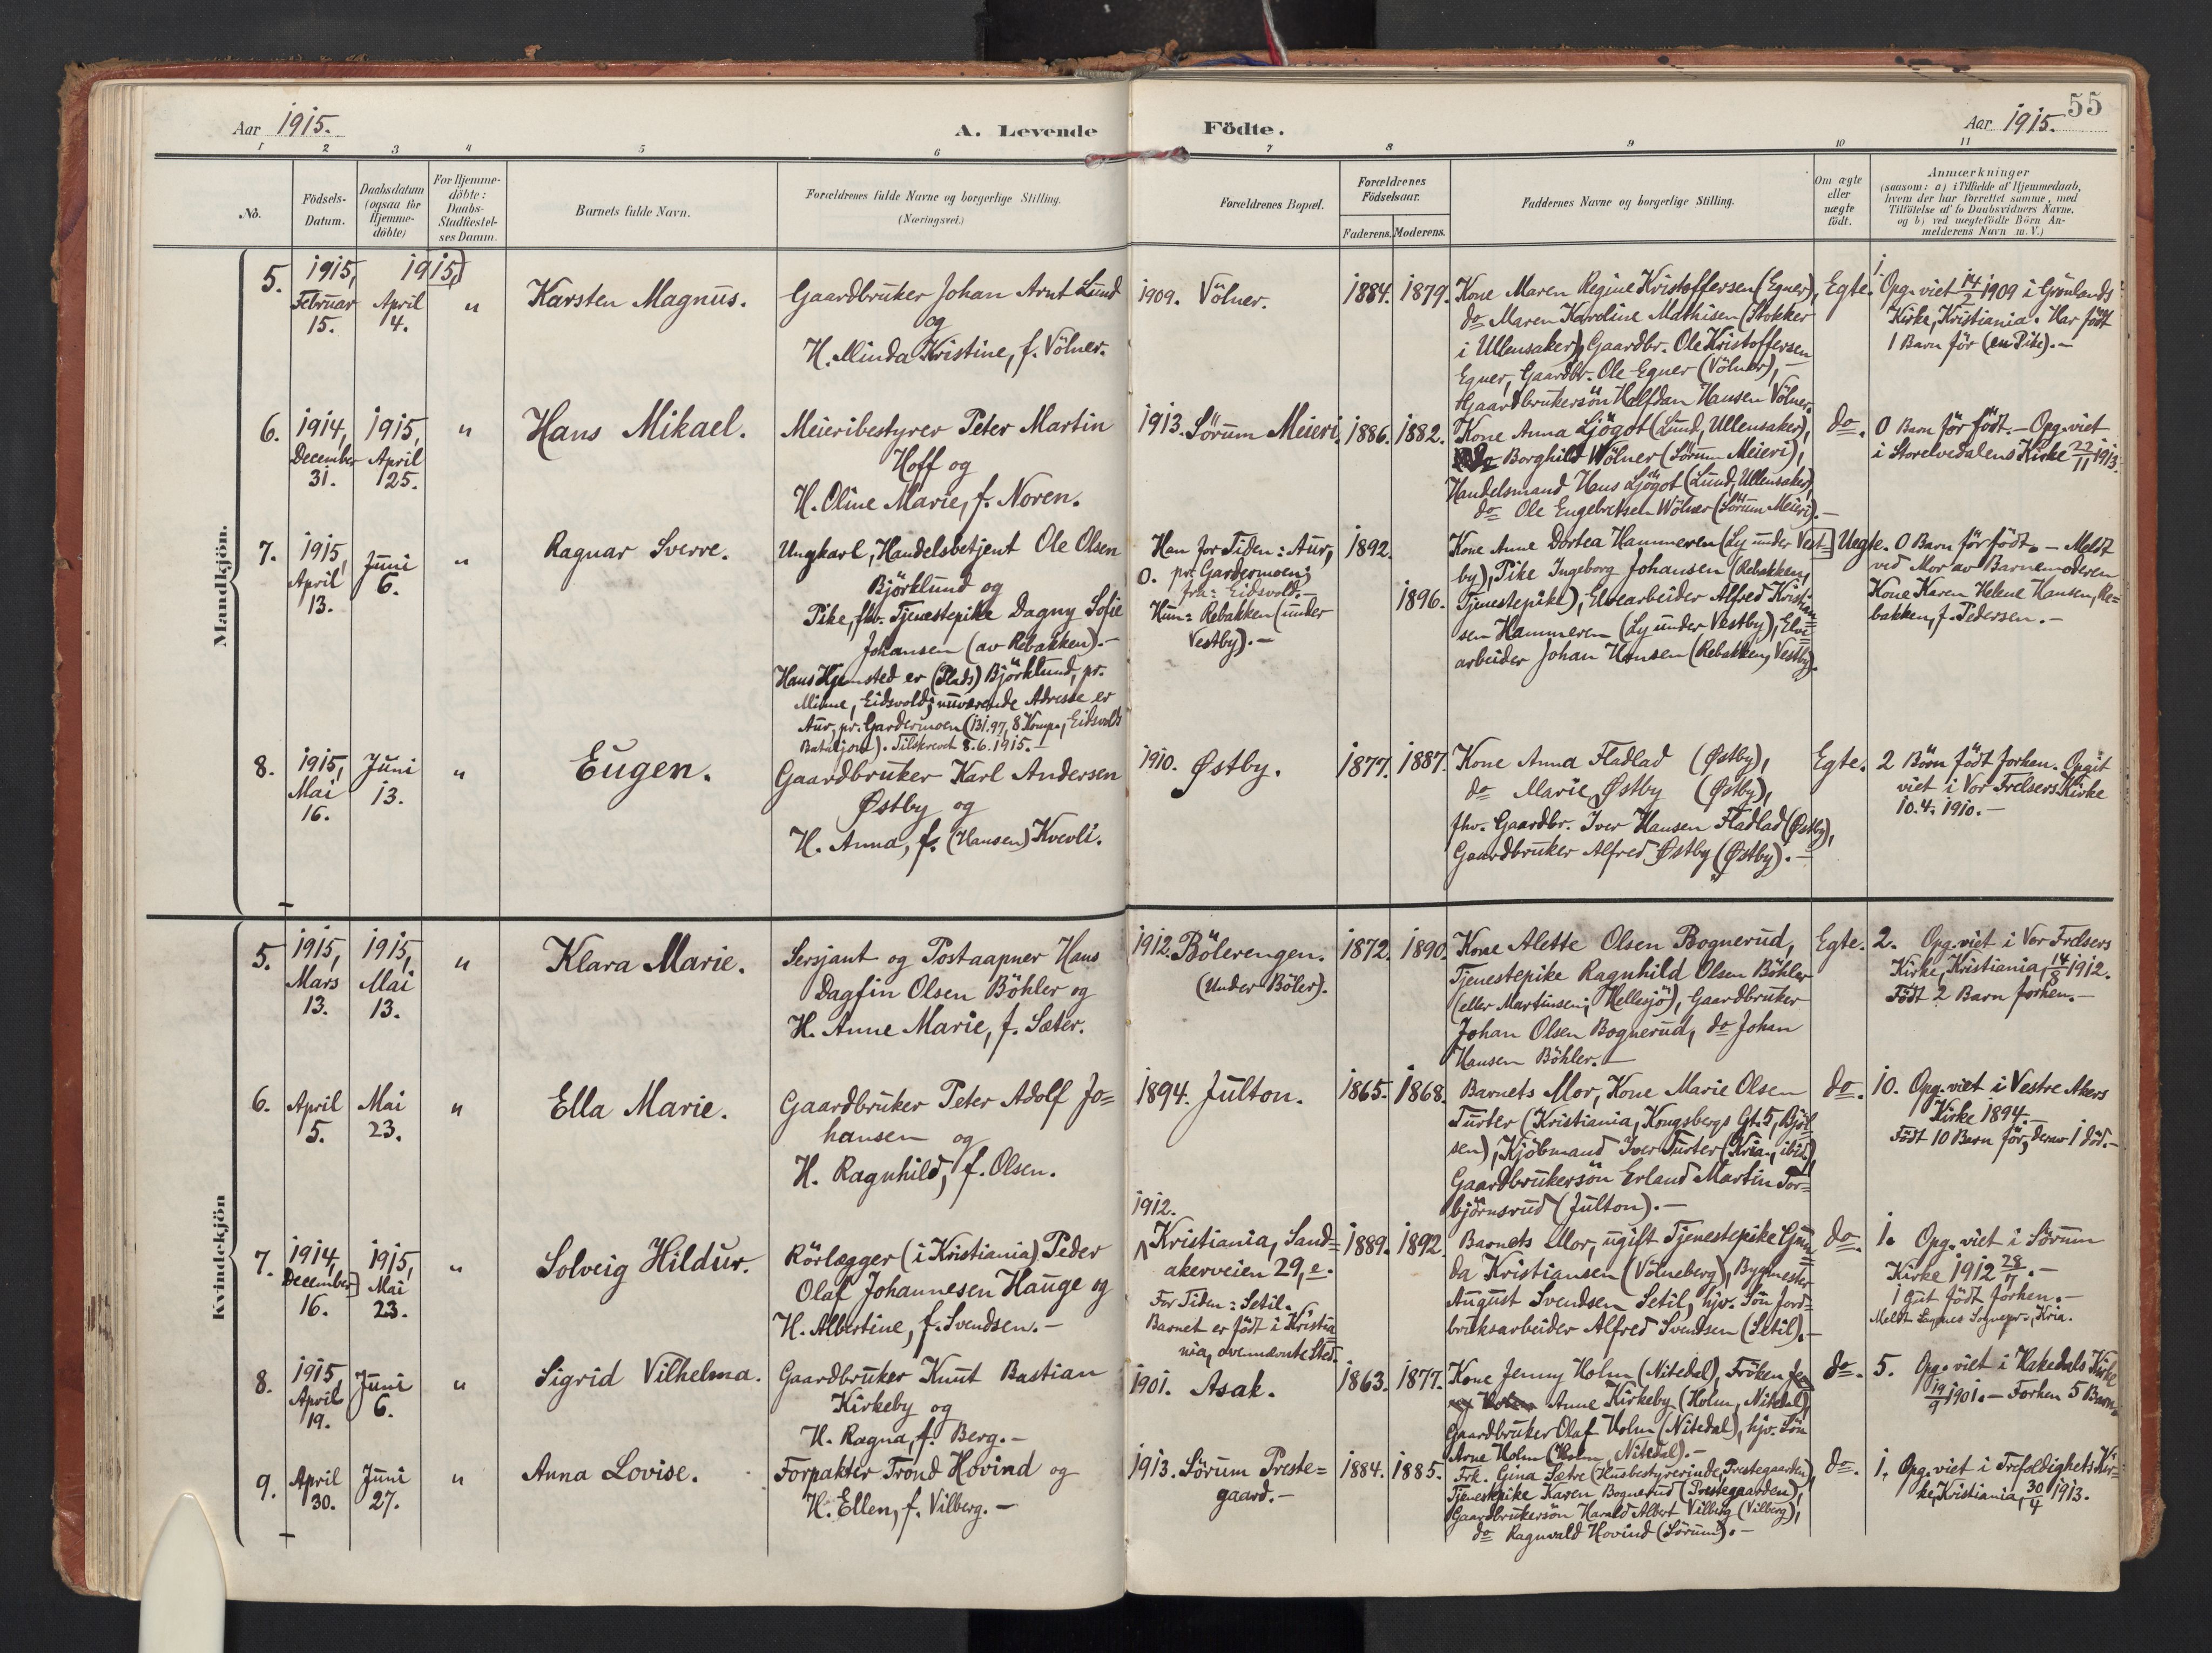 Aar 1915.
A. Levende Födte.
55
Aar 1915.
1 2 3 4 5 6 7 8 9 10 11
No.
Födsels-
Datum.
Daabsdatum
(ogsaa for
Hjemme-
döbte)
For Hjemme-
döbte:
Daabs-
Stadfæstel-
ses Datum.
Barnets fulde Navn.
Forældrenes fulde Navne og borgerlige Stilling.
(Næringsvei.)
Forældrenes Bopæl.
Forældrenes
Födselsaar.
Faderens. Moderens.
Faddernes Navne og borgerlige Stilling.
Om ægte
eller
uægte
födt.
Anmærkninger
(saasom: a) i Tilfælde af Hjemmedaab,
hvem der har forrettet samme, med
Tilföielse af to Daabsvidners Navne,
og b) ved uægtefödte Börn An-
melderens Navn m. V.)
Mandkjön.
5.
1915,
Februar
15.
1915,
April
4.
"
Karsten Magnus.
Gaardbruker Johan Arnt Lund
og
H. Minda Kristine, f. Völner.
1909. Völner.
1884. 1879.
Kone Maren Regine Kristoffersen (Egner),
do Maren Karoline Mathisen (Stokker
i Ullensaker), Gaardbr. Ole Kristoffersen
Egner, Gaardbr. Ole Egner (Völner), —
Gaardbrukersön Halfdan Hansen Völner.
Egte.
1.
Opg. viet 14/2 1909 i Grønlands
Kirke, Kristiania. Har födt
1 Barn för (en Pike). —
6.
1914,
December
31.
1915,
April
25.
"
Hans Mikael.
Meieribestyrer Peter Martin
Hoff og
H. Oline Marie, f. Noren.
1913. Sörum Meieri.
1886. 1882.
Kone Anna Ljögot (Lund, Ullensaker),
do Borghild Wölner (Sörum Meieri),
Handelsmand Hans Ljögot (Lund, Ullensaker),
do Ole Engebretsen Wölner (Sörum Meieri). —
do.
0 Barn för födt. — Opg. viet
i Storelvedalens Kirke 22/11 1913.
7.
1915,
April
13.
Juni
6.
"
Ragnar Sverre.
Ungkarl, Handelsbetjent Ole Olsen
Björklund og
Pike, fhv. Tjenestepike Dagny Sofie
Johansen (av Rebakken). —
Hans Hjemsted er (Plads) Björklund, pr.
Minne, Eidsvold; nuværende Adresse er
Aur, pr. Gardermoen (131.97, 8 Komp., Eidsvolds
Bataljon). Tilskrevet 8.6.1915. —
Han for Tiden: Aur,
o. pr. Gardermoen;
fra: Eidsvold. —
Hun: Rebakken (under
Vestby). —
1892.
1896.
Kone Anne Dortea Hammeren (Ly under Vest-
by), Pike Ingeborg Johansen (Rebakken,
Tjenestepike), Elvearbeider Alfred Kristian
sen Hammeren (Ly under Vestby), Elve
arbeider Johan Hansen (Rebakken, Vestby).
Uegte.
0 Barn för födt. — Meldt
ved Mor av Barnemoderen
Kone Karen Helene Hansen, Re=
bakken, f. Pedersen. —
8.
1915,
Mai
16.
Juni
13.
"
Eugen.
Gaardbruker Karl Andersen
Østby og
H. Anna, f. (Hansen) Kvevli.
1910. Østby.
1877. 1887.
Kone Anna Fladlad (Østby),
do Marie Østby (Østby),
fhv. Gaardbr. Iver Hansen Fladlad (Østby),
Gaardbruker Alfred Østby (Østby). —
Egte.
2 Börn födt forhen. Opgit
viet i Vor Frelsers Kirke
10.4. 1910. —
Kvindekjön
5.
1915,
Mars
13.
1915,
Mai
13.
"
Klara Marie.
Sersjant og Postaapner Hans
Dagfin Olsen Böhler og
H. Anne Marie, f. Sæter.
1912. Bölerengen.
(Under Böler).
1872. 1890.
Kone Alette Olsen Bognerud,
Tjenestepike Ragnhild Olsen Böhler
(eller Martinsen; Hellesjö), Gaardbruker
Johan Olsen Bognerud, do Johan
Hansen Böhler. —
Egte.
2. Opg. viet i Vor Frelsers
Kirke, Kristiania, 14/8 1912.
Födt 2 Barn forhen. —
6.
April
5.
Mai
23.
"
Ella Marie.
Gaardbruker Peter Adolf Jo=
hansen og
H. Ragnhild, f. Olsen.
1894. Julton.
1865. 1868.
Barnets Mor, Kone Marie Olsen
Furter (Kristiania, Kongsbergs Gt. 5, Bjöl
sen), Kjöbmand Iver Furter (Kria, ibid.),
Gaardbrukersön Erland Martin Tor=
björnsrud (Julton). —
do.
10. Opg. viet i Vestre Akers
Kirke 1894. —
Födt 10 Barn för, derav 1 död. —
7.
1914,
December
16.
1915,
Mai
23.
"
Solveig Hildur.
Rörlægger (i Kristiania) Peder
Olaf Johannesen Hauge og
H. Albertine, f. Svendsen. —
1912.
Kristiania, Sand=
akerveien 29, e.
For Tiden: Setil.
Barnet er födt i Kristia
nia, ovennævnte Sted.
1889. 1892.
Barnets Mor, ugift Tjenestepike Gun=
da Kristiansen (Völneberg), Bygmester
August Svendsen Setil, hjv. Sön Jord=
bruksarbeider Alfred Svendsen (Setil). —
do.
1. Opg. viet i Sörum
Kirke 1912 28/7. —
1 Gut födt forhen. —
Meldt Sognepr., Kria.
8.
1915,
April
19.
Juni
6.
"
Sigrid Vilhelma.
Gaardbruker Knut Bastian
Kirkeby og
H. Ragna, f. Berg. —
1901. Asak.
1863. 1877.
Kone Jenny Holm (Nitedal), Fröken
Anne Kirkeby (Holm, Nitedal),
Gaardbruker Olaf Holm (Nitedal), hjv. Sön
Arne Holm (Holm, Nitedal). —
do.
5. Opg. viet i Hakedals Kirke
19/9 1901. — Forhen 5 Barn.
9.
April
30.
Juni
27.
"
Anna Lovise.
Forpakter Trond Hovind og
H. Ellen, f. Vilberg. —
1913. Sörum Preste=
gaard. —
1884. 1885.
Frk. Gina Sætre (Husbestyrerinde, Prestegaarden),
Tjenestepike Karen Bognerud (Prestegaarden),
Gaardbrukersön Harald Albert Vilberg (Vilberg),
do Ragnvald Hovind (Sörum). —
do.
1. Opg. viet i Trefoldighets Kir=
ke, Kristiania, 30/4 1913.